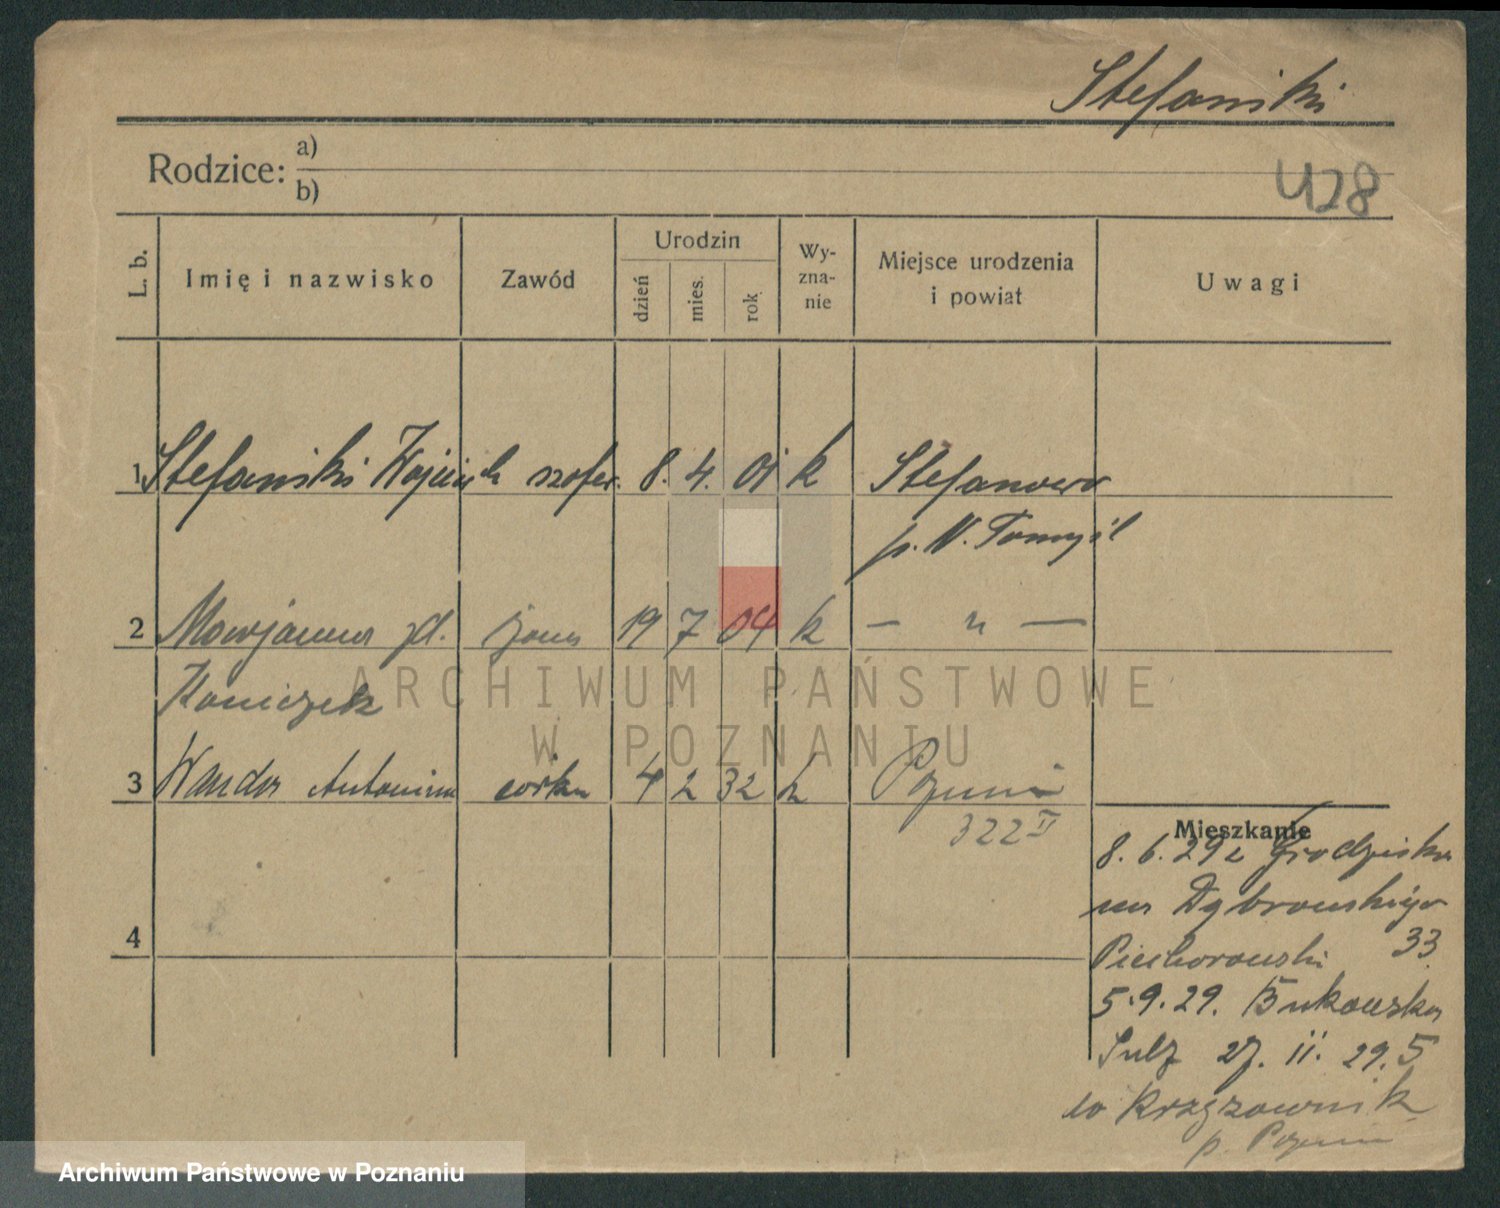 Stefański
Rodzice: a)
b)
428
L. b.
Imię i nazwisko
Zawód
Urodzin
dzień
mies.
rok
Wy-
zna-
nie
Miejsce urodzenia
i powiat
Uwagi
1 Stefański Wojciech szofer. 8. 4. 01 k Stefanowo
p. N. Tomyśl
2 Marjanna zd. żona 19 7 04 k — " —
Koniczek
3 Wanda Antonina córka 4 2 32 k Poznań
322 II
4
Mieszkanie
8. 6. 29 z Grodziska
na Dąbrowskiego
Piechorowski 33
5.9.29. Bukowska
Sulz 27. 11. 29. 5
do Krzyżownik
p. Poznań
ARCHIWUM PAŃSTWOWE
W POZNANIU
Archiwum Państwowe w Poznaniu